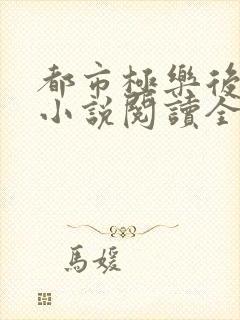 都市極樂後
小說閱讀全
馬媛